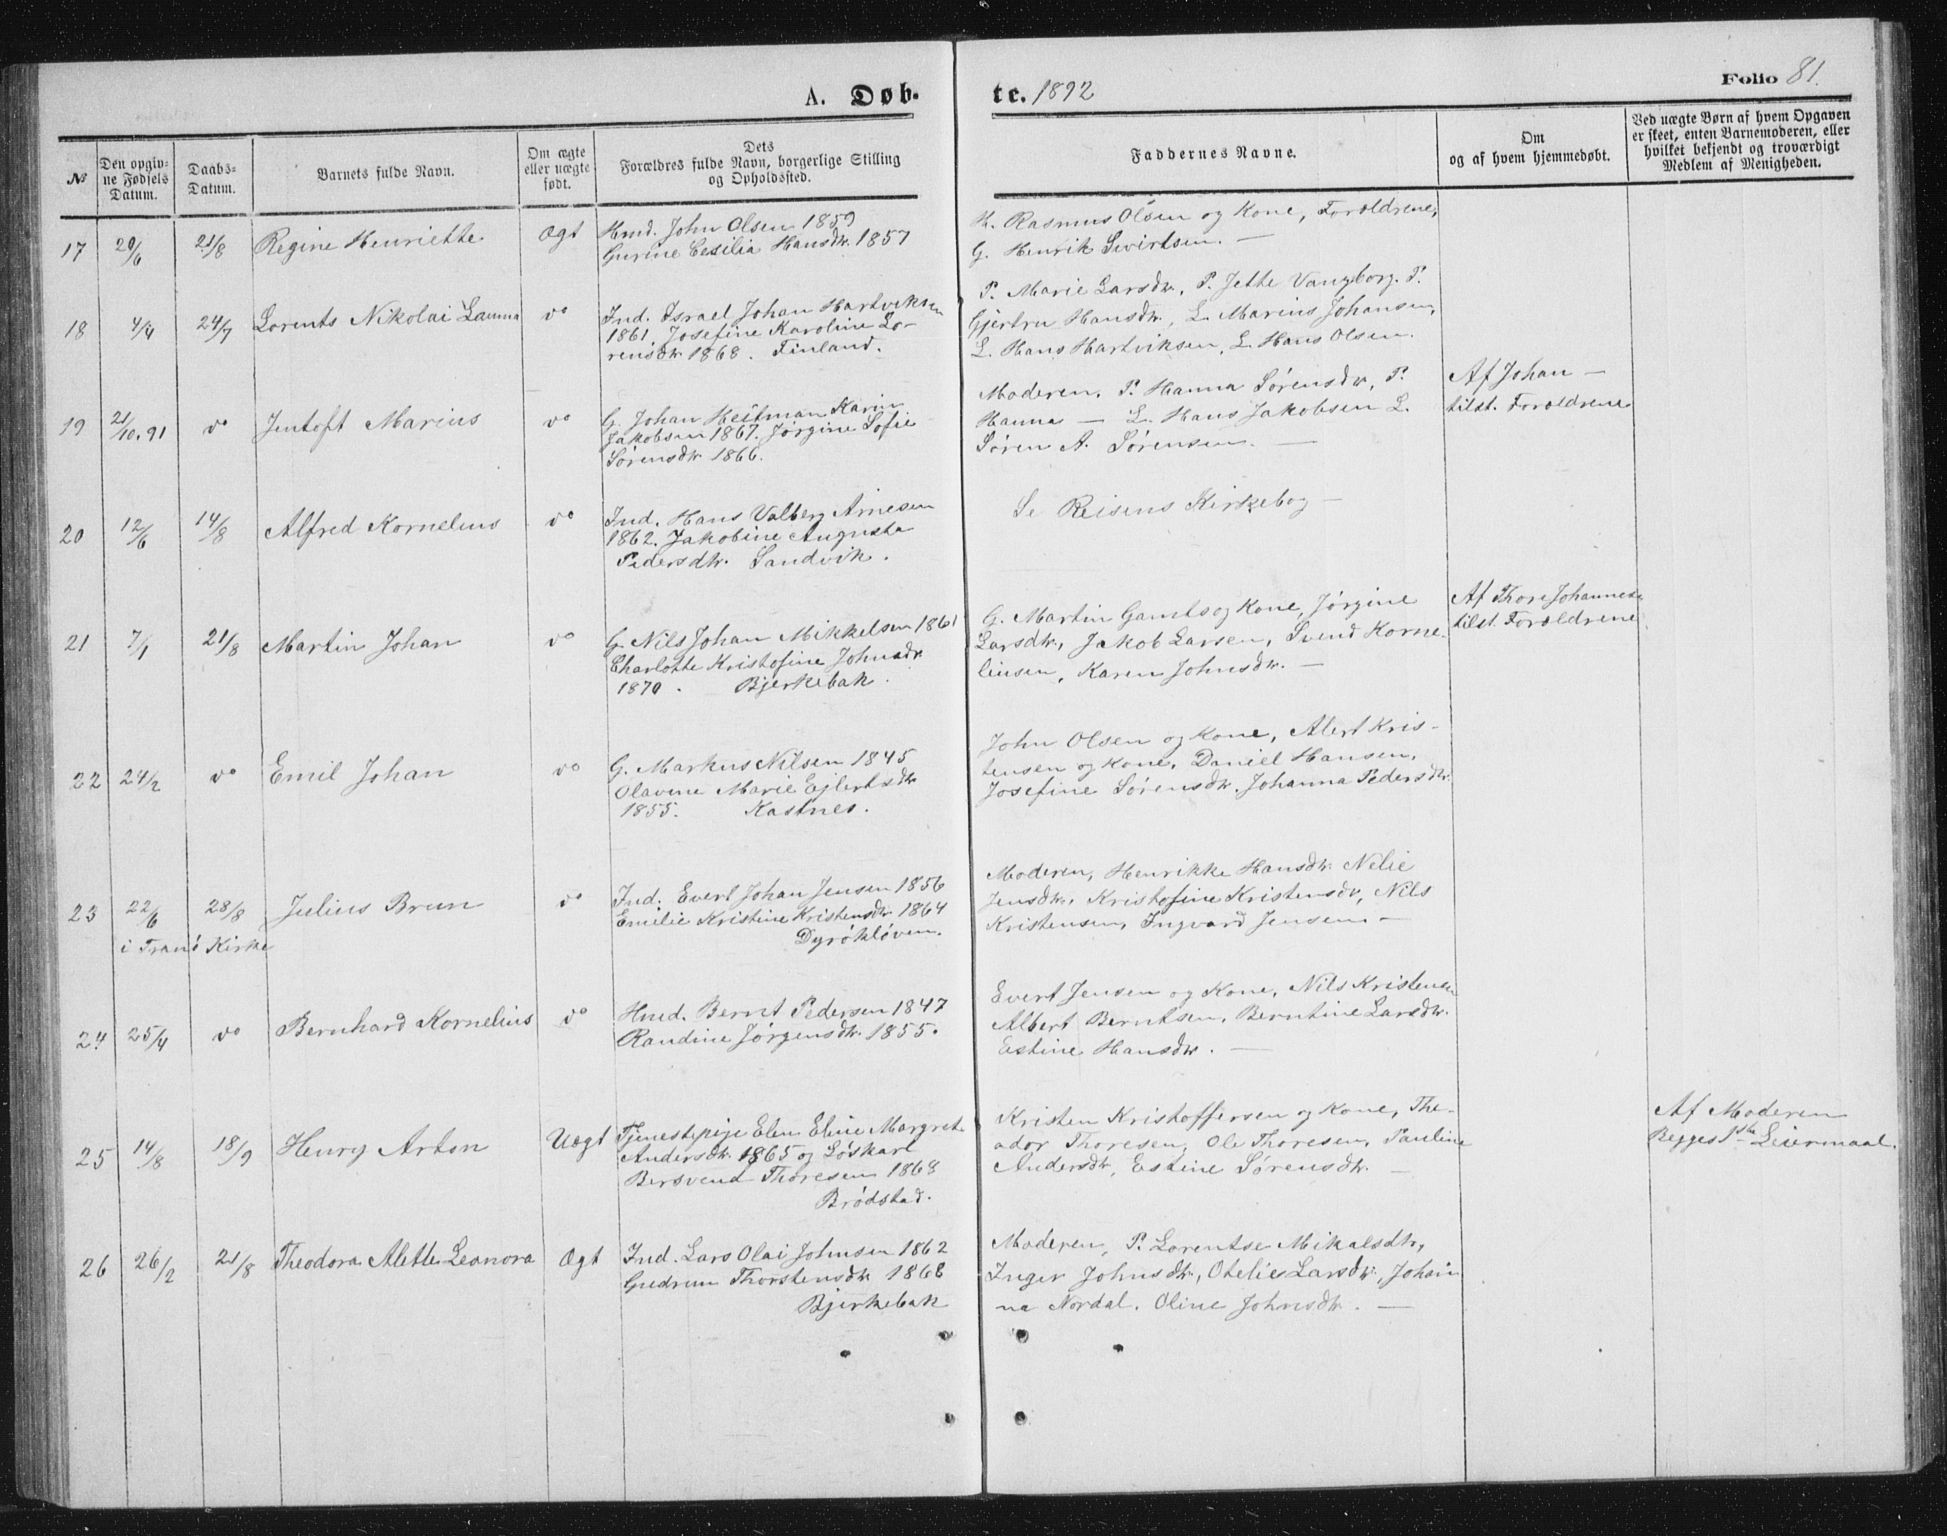 A. Døb-
te. 1892
Folio 81.
№
Den opgiv-
ne Fødsels
Datum.
Daabs-
Datum.
Barnets fulde Navn.
Om ægte
eller uægte
født.
Dets
Forældres fulde Navn, borgerlige Stilling
og Opholdssted.
Faddernes Navne.
Om
og af hvem hjemmedøbt.
Ved uægte Børn af hvem Opgaven
er skeet, enten Barnemoderen, eller
hvilket bekjendt og troværdigt
Medlem af Menigheden.
17 20/6 21/8 Regine Henriette Ægt
Hmd. John Olsen 1859
Gurine Cesilia Hansdtr. 1857
H. Rasmus Olsen og Kone, Forældrene,
G. Henrik Sivirtsen. —
18 4/4 24/7 Lorents Nikolai Lamma do
Ind. Israel Johan Hartviksen
1861. Josefine Karoline Lo-
rensdtr. 1868. Finland.
P. Marie Larsdtr, P. Jette Vangborg. P.
Gjertru Hansdtr, L. Marius Johansen,
L. Hans Hartviksen, L. Hans Olsen.
19 21/10.91 do Jentoft Marius do
G. Johan Heitman Karin
Jakobsen 1867. Jørgine Sofie
Sørensdtr 1866.
Moderen, P. Hanna Sørensdtr, P.
Hanna — L. Hans Jakobsen L.
Søren A. Sørensen. —
Af Johan —
tilst. Forældrene
20 12/6 14/8 Alfred Kornelius do
Ind. Hans Valberg Arnesen
1862. Jakobine Augusta
Pedersdtr. Sandvik.
Se Reisens Kirkebog —
21 7/1 21/8 Martin Johan do
G. Nils Johan Mikkelsen 1861
Charlotte Kristofine Johnsdtr
1870. Bjerkebak.
G. Martin Gamts og Kone, Jørgine
Larsdtr, Jakob Larsen, Svend Korne-
liusen, Karen Johnsdtr. —
Af Thore Johannes.
tilst. Forældrene.
22 24/2 do Emil Johan do
G. Markus Nilsen 1845
Olavine Marie Ejlertsdtr
1855. Kastnes.
John Olsen og Kone, Alert Kris-
tensen og Kone, Daniel Hansen,
Josefine Sørensdtr. Johanna Pedersdtr.
23 22/6 28/8 Julius Brun do
i Tranø Kirke
Ind. Evert Johan Jensen 1856
Emilie Kristine Kristensdtr. 1864
Dyrøkløven.
Moderen, Henrikke Hansdtr. Nelie
Jensdtr. Kristofine Kristensdtr, Nils
Kristensen, Ingvard Jensen —
24 25/4 do Bernhard Kornelius do
Hmd. Bernt Pedersen 1847
Randine Jørgensdtr. 1855.
Evert Jensen og Kone, Nils Kristensen
Albert Berntsen, Berntine Larsdtr.
Estine Hansdtr. —
25 14/8 18/9 Henry Arton Uægt
Tjenestepige Elen Eline Margrete
Andersdtr. 1865 og Løskarl
Bersvend Thoresen 1868
Brødstad.
Kristen Kristoffersen og Kone, The-
ador Thoresen, Ole Thoresen, Pauline
Andersdtr, Estine Sørensdtr. —
Af Moderen
Begges 1ste Leiermaal.
26 26/2 21/8 Theodora Alette Leonora Ægt
Ind. Lars Olai Johnsen 1862
Gudrun Thorstensdtr 1868
Bjerkebak
Moderen, P. Lorentse Mikalsdtr,
Inger Johnsdtr, Otelie Larsdtr, Johan-
na Nordal. Oline Johnsdtr. —